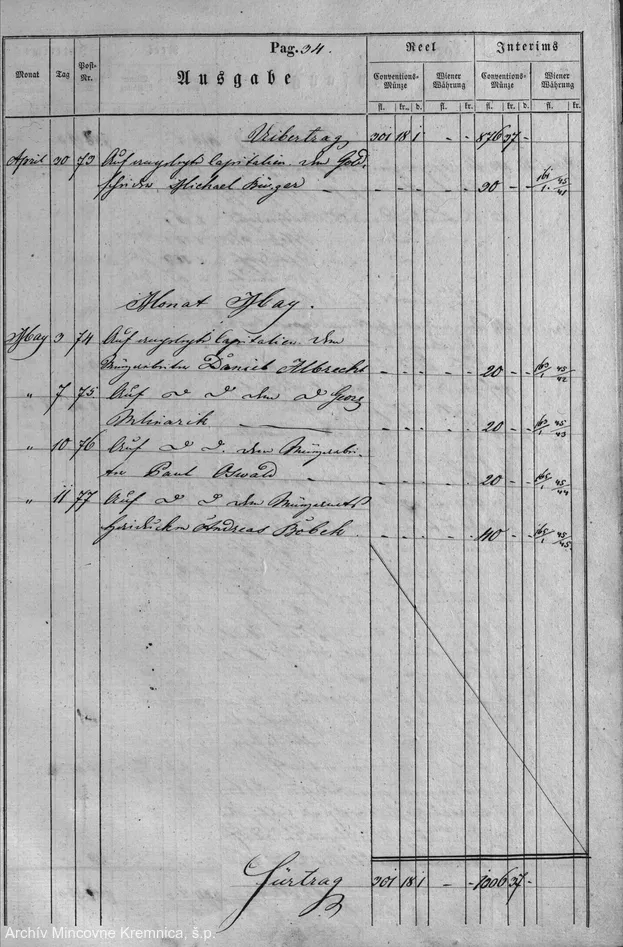 Pag. 34.
Reel Interims
Monat Tag Post-Nr. Ausgabe Conventions-Münze Wiener Währung Conventions-Münze Wiener Währung
fl. kr. d. fl. kr. fl. kr. fl. kr.
Uibertrag 301 18 1 - - 876 37 -
April 30 73 Auf angelegte Capitalien dem Gold
scheider Michael Bürger - - - - - 30 - 161/1. 45/41
Monat May.
May 3 74 Auf angelegte Capitalien dem
Münzarbeiter Daniel Albrecht - - - - - 20 - 162/1 45/42
" 7 75 Auf d d dem d Georg
Mlinarik - - - - - 20 - 163/1 45/43
" 10 76 Auf d d. dem Münzarbei-
ter Paul Oswald - - - - - 20 - 165/1 45/44
" 11 77 Auf d d dem Münzamts
Heiducken Andreas Bobek. - - - - - 40 - 165/1 45/45.
Fürtrag 301 18 1 - - 1006 37 -
Archív Mincovne Kremnica, š.p.